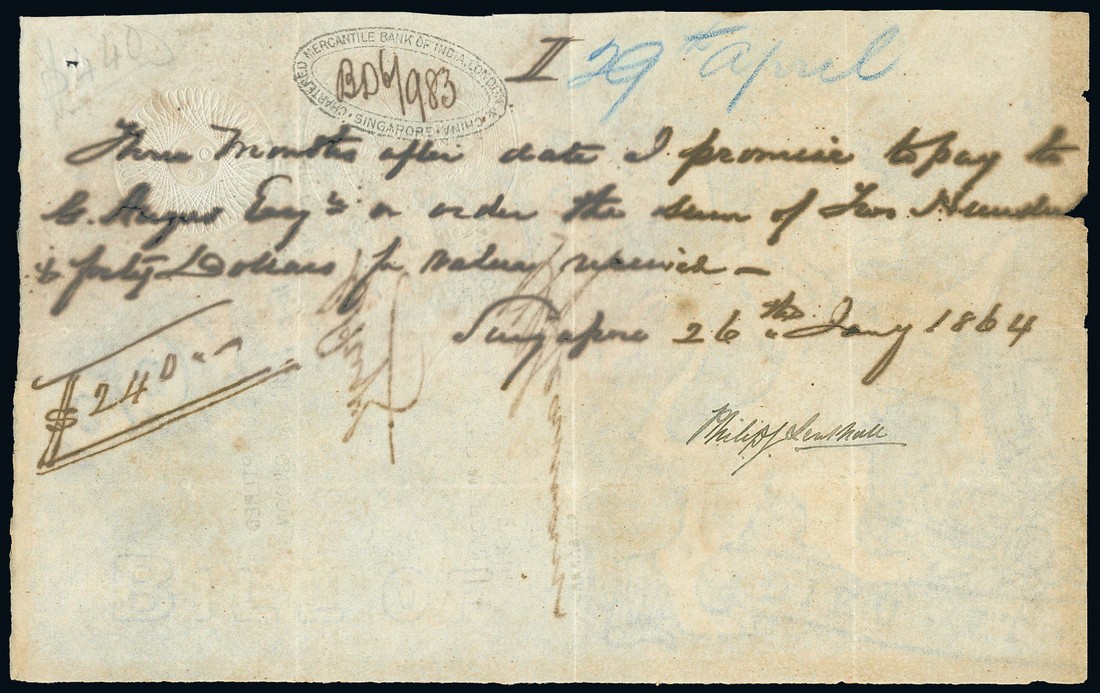 $240
CHARTERED MERCANTILE BANK OF INDIA, LONDON & CHINA
SINGAPORE
BD 6/983
II 29th April
Three Months after date I promise to pay to
C. Esqre or order the sum of Two Hundred
& forty Dollars for value received —
Singapore 26th Jany 1864
$240
Philip J.